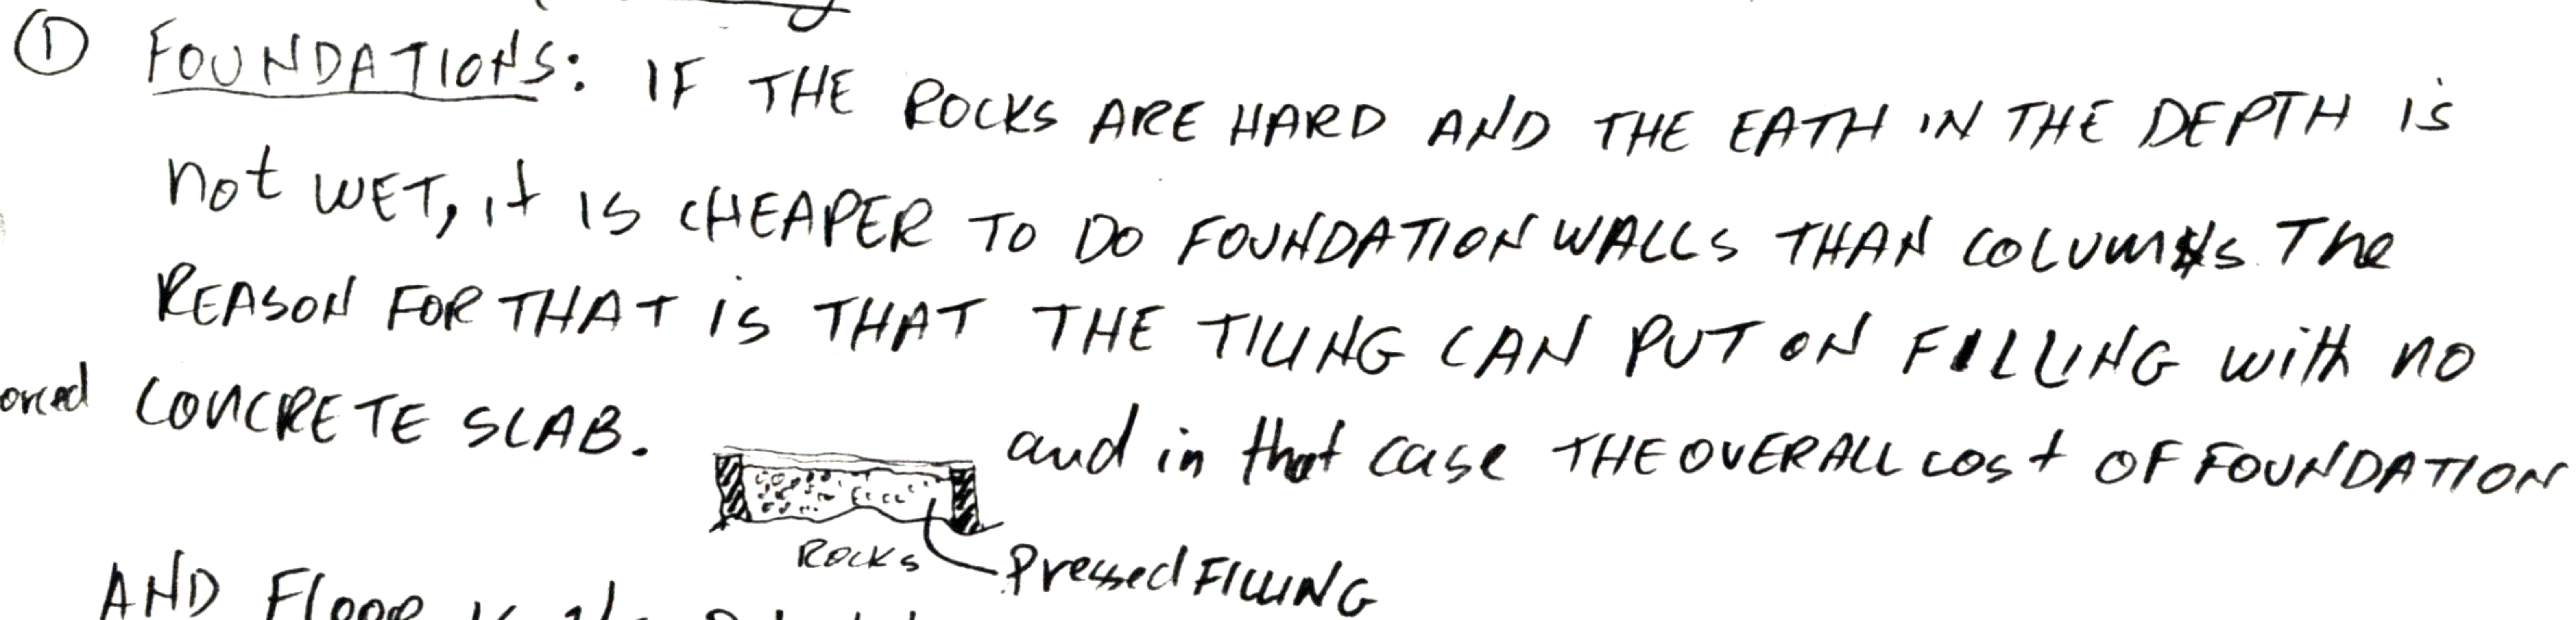 ① FOUNDATIONS: IF THE ROCKS ARE HARD AND THE EATH IN THE DEPTH is
not WET, it IS CHEAPER TO DO FOUNDATION WALLS THAN COLUMNS. The
REASON FOR THAT is THAT THE TILING CAN PUT ON FILLING with no
orced CONCRETE SLAB. and in that case THE OVERALL cost OF FOUNDATION
ROCKS
Pressed FILLING
AND Floor